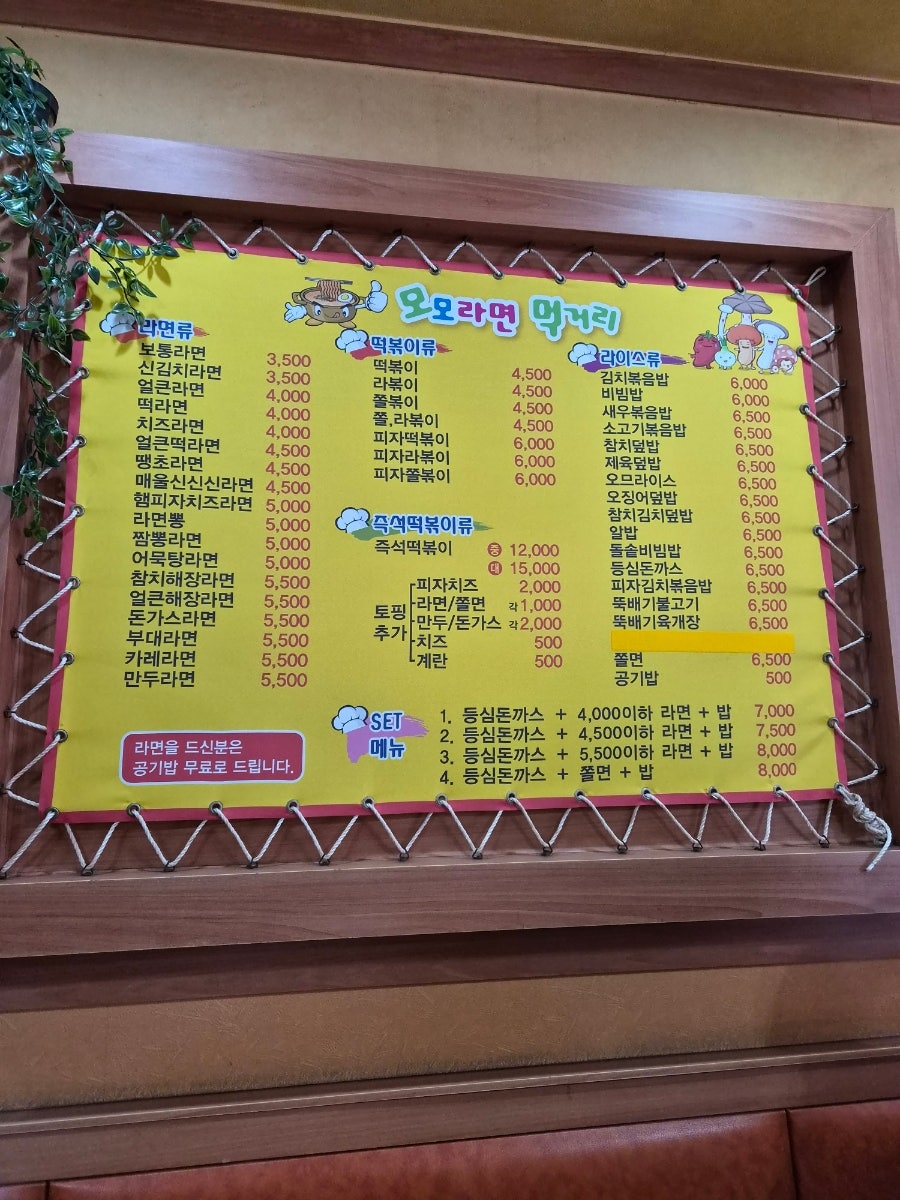 모모라면 먹거리
라면류
보통라면 3,500
신김치라면 3,500
얼큰라면 4,000
떡라면 4,000
치즈라면 4,000
얼큰떡라면 4,500
땡초라면 4,500
매울신신신라면 4,500
햄피자치즈라면 5,000
라면뽕 5,000
짬뽕라면 5,000
어묵탕라면 5,000
참치해장라면 5,500
얼큰해장라면 5,500
돈가스라면 5,500
부대라면 5,500
카레라면 5,500
만두라면 5,500
라면을 드신분은
공기밥 무료로 드립니다.
떡볶이류
떡볶이 4,500
라볶이 4,500
쫄볶이 4,500
쫄,라볶이 4,500
피자떡볶이 6,000
피자라볶이 6,000
피자쫄볶이 6,000
즉석떡볶이류
즉석떡볶이 중 12,000
대 15,000
토핑
추가
피자치즈 2,000
라면/쫄면 각1,000
만두/돈가스 각2,000
치즈 500
계란 500
라이스류
김치볶음밥 6,000
비빔밥 6,000
새우볶음밥 6,500
소고기볶음밥 6,500
참치덮밥 6,500
제육덮밥 6,500
오므라이스 6,500
오징어덮밥 6,500
참치김치덮밥 6,500
알밥 6,500
돌솥비빔밥 6,500
등심돈까스 6,500
피자김치볶음밥 6,500
뚝배기불고기 6,500
뚝배기육개장 6,500
쫄면 6,500
공기밥 500
SET
메뉴
1. 등심돈까스 + 4,000이하 라면 + 밥 7,000
2. 등심돈까스 + 4,500이하 라면 + 밥 7,500
3. 등심돈까스 + 5,500이하 라면 + 밥 8,000
4. 등심돈까스 + 쫄면 + 밥 8,000